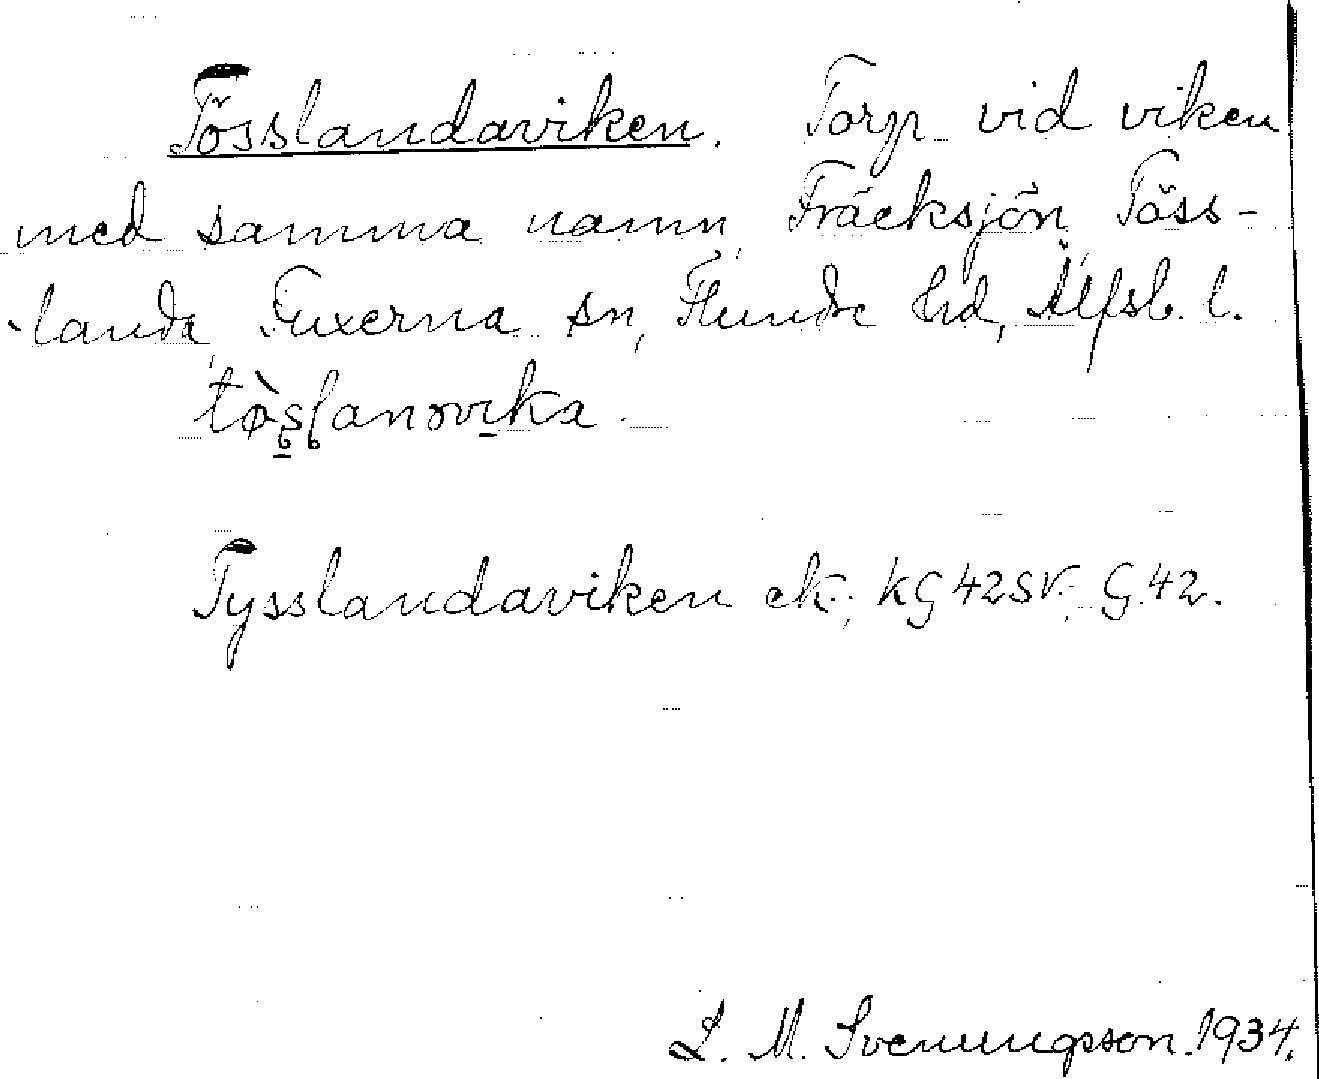 Tösslandaviken. Torp vid viken
med samma namn, Fräcksjön, Töss-
landa, Fuxerna sn, Flundre hrd, Älfsb. l.
Tysslandaviken ek.; KG 42SV; G 42.
L. M. Svenungsson 1934.